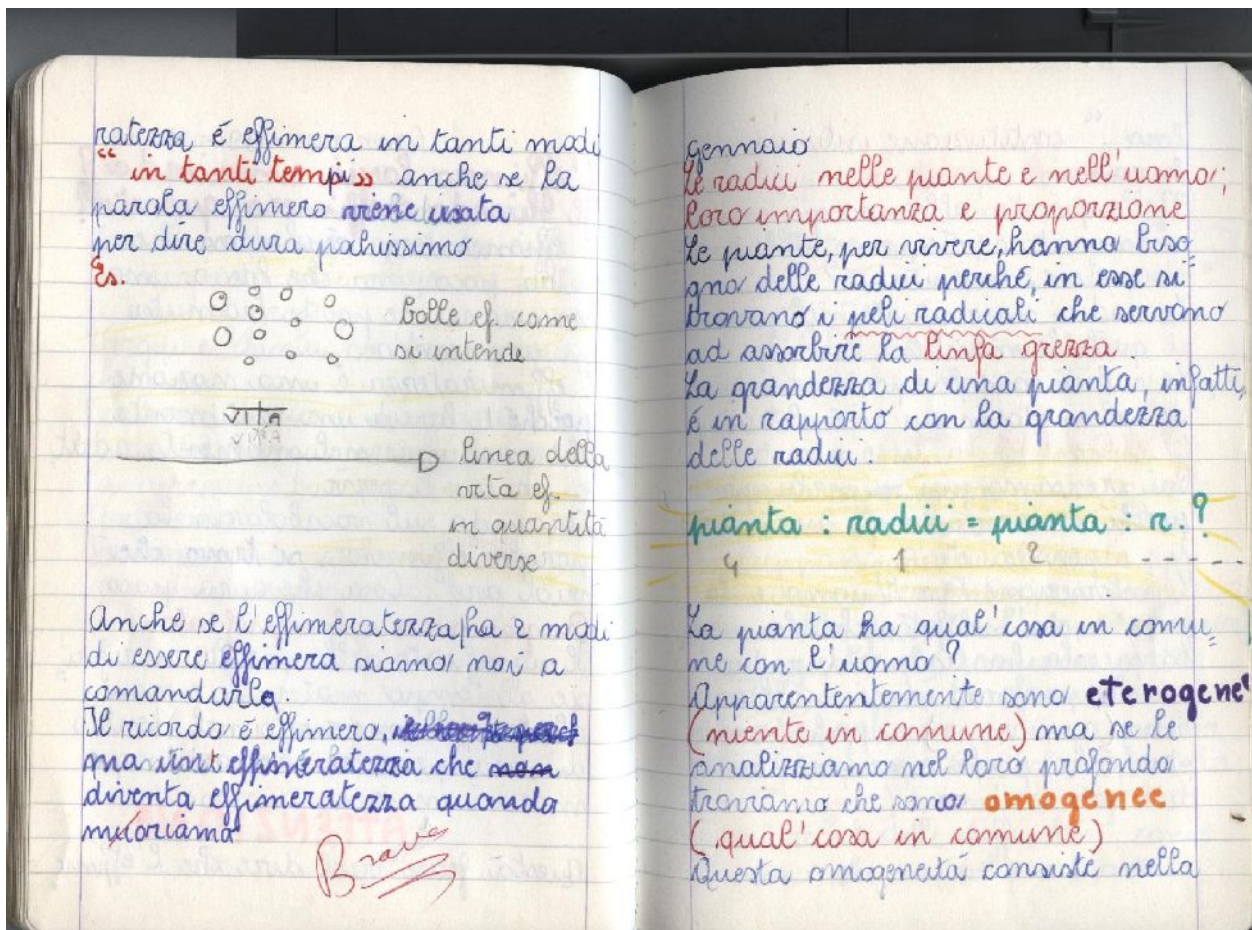 ratezza é effimera in tanti modi
“in tanti tempi» anche se la
parola effimero viene usata
per dire dura pohissimo
Es.
bolle ef. come
si intende
VITA
VITA
linea della
vita ef.
in quantitá
diverse
Anche se l'effimeratezza ha 2 modi
di essere effimera siamo noi a
comandarla.
Il ricordo é effimero,
ma effimeratezza che non
diventa effimeratezza quando
moriamo
Brava
Gennaio
Le radici nelle piante e nell'uomo;
loro importanza e proporzione
Le piante, per vivere, hanno biso
gno delle radici perché, in esse si
trovano i peli radicali che servono
ad assorbire la linfa grezza.
La grandezza di una pianta, infatti,
é in rapporto con la grandezza
delle radici.
pianta : radici = pianta : r. ?
4 1 2 - - - - -
La pianta ha qual'cosa in comu
ne con l'uomo?
Apparententemente sono eterogenee
(niente in comune) ma se le
analizziamo nel loro profondo
troviamo che sono omogenee
(qual'cosa in comune)
Questa omogeneitá consiste nella